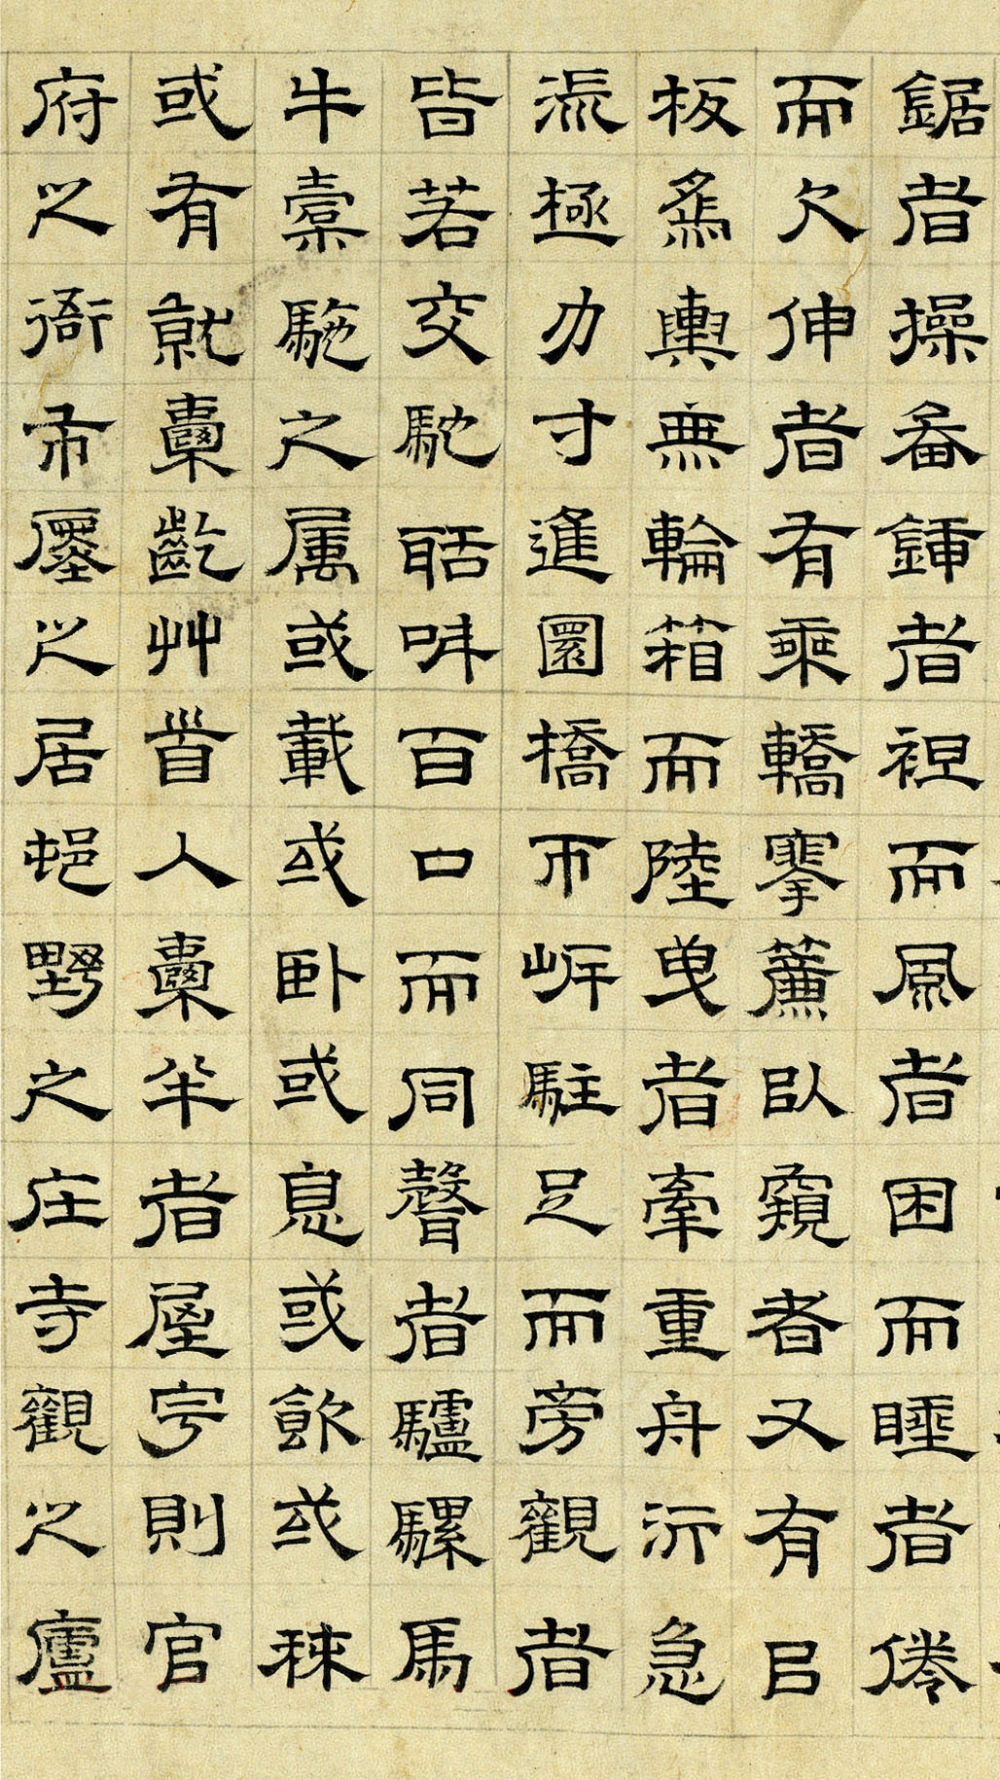 鋸者操畚鍤者袒而風者困而睡者倦
而欠伸者有乘轎搴簾以窺者又有以
板為輿無輪箱而陸曳者牽重舟泝急
流極力寸進圜橋帀岸駐足而旁觀者
皆若交馳聒呌百口而同聲者驢騾馬
牛橐駞之属或載或卧或息或飲或秣
或有就囊齕艸首入囊半者屋宇則官
府之衙市廛之居邨野之庄寺觀之廬